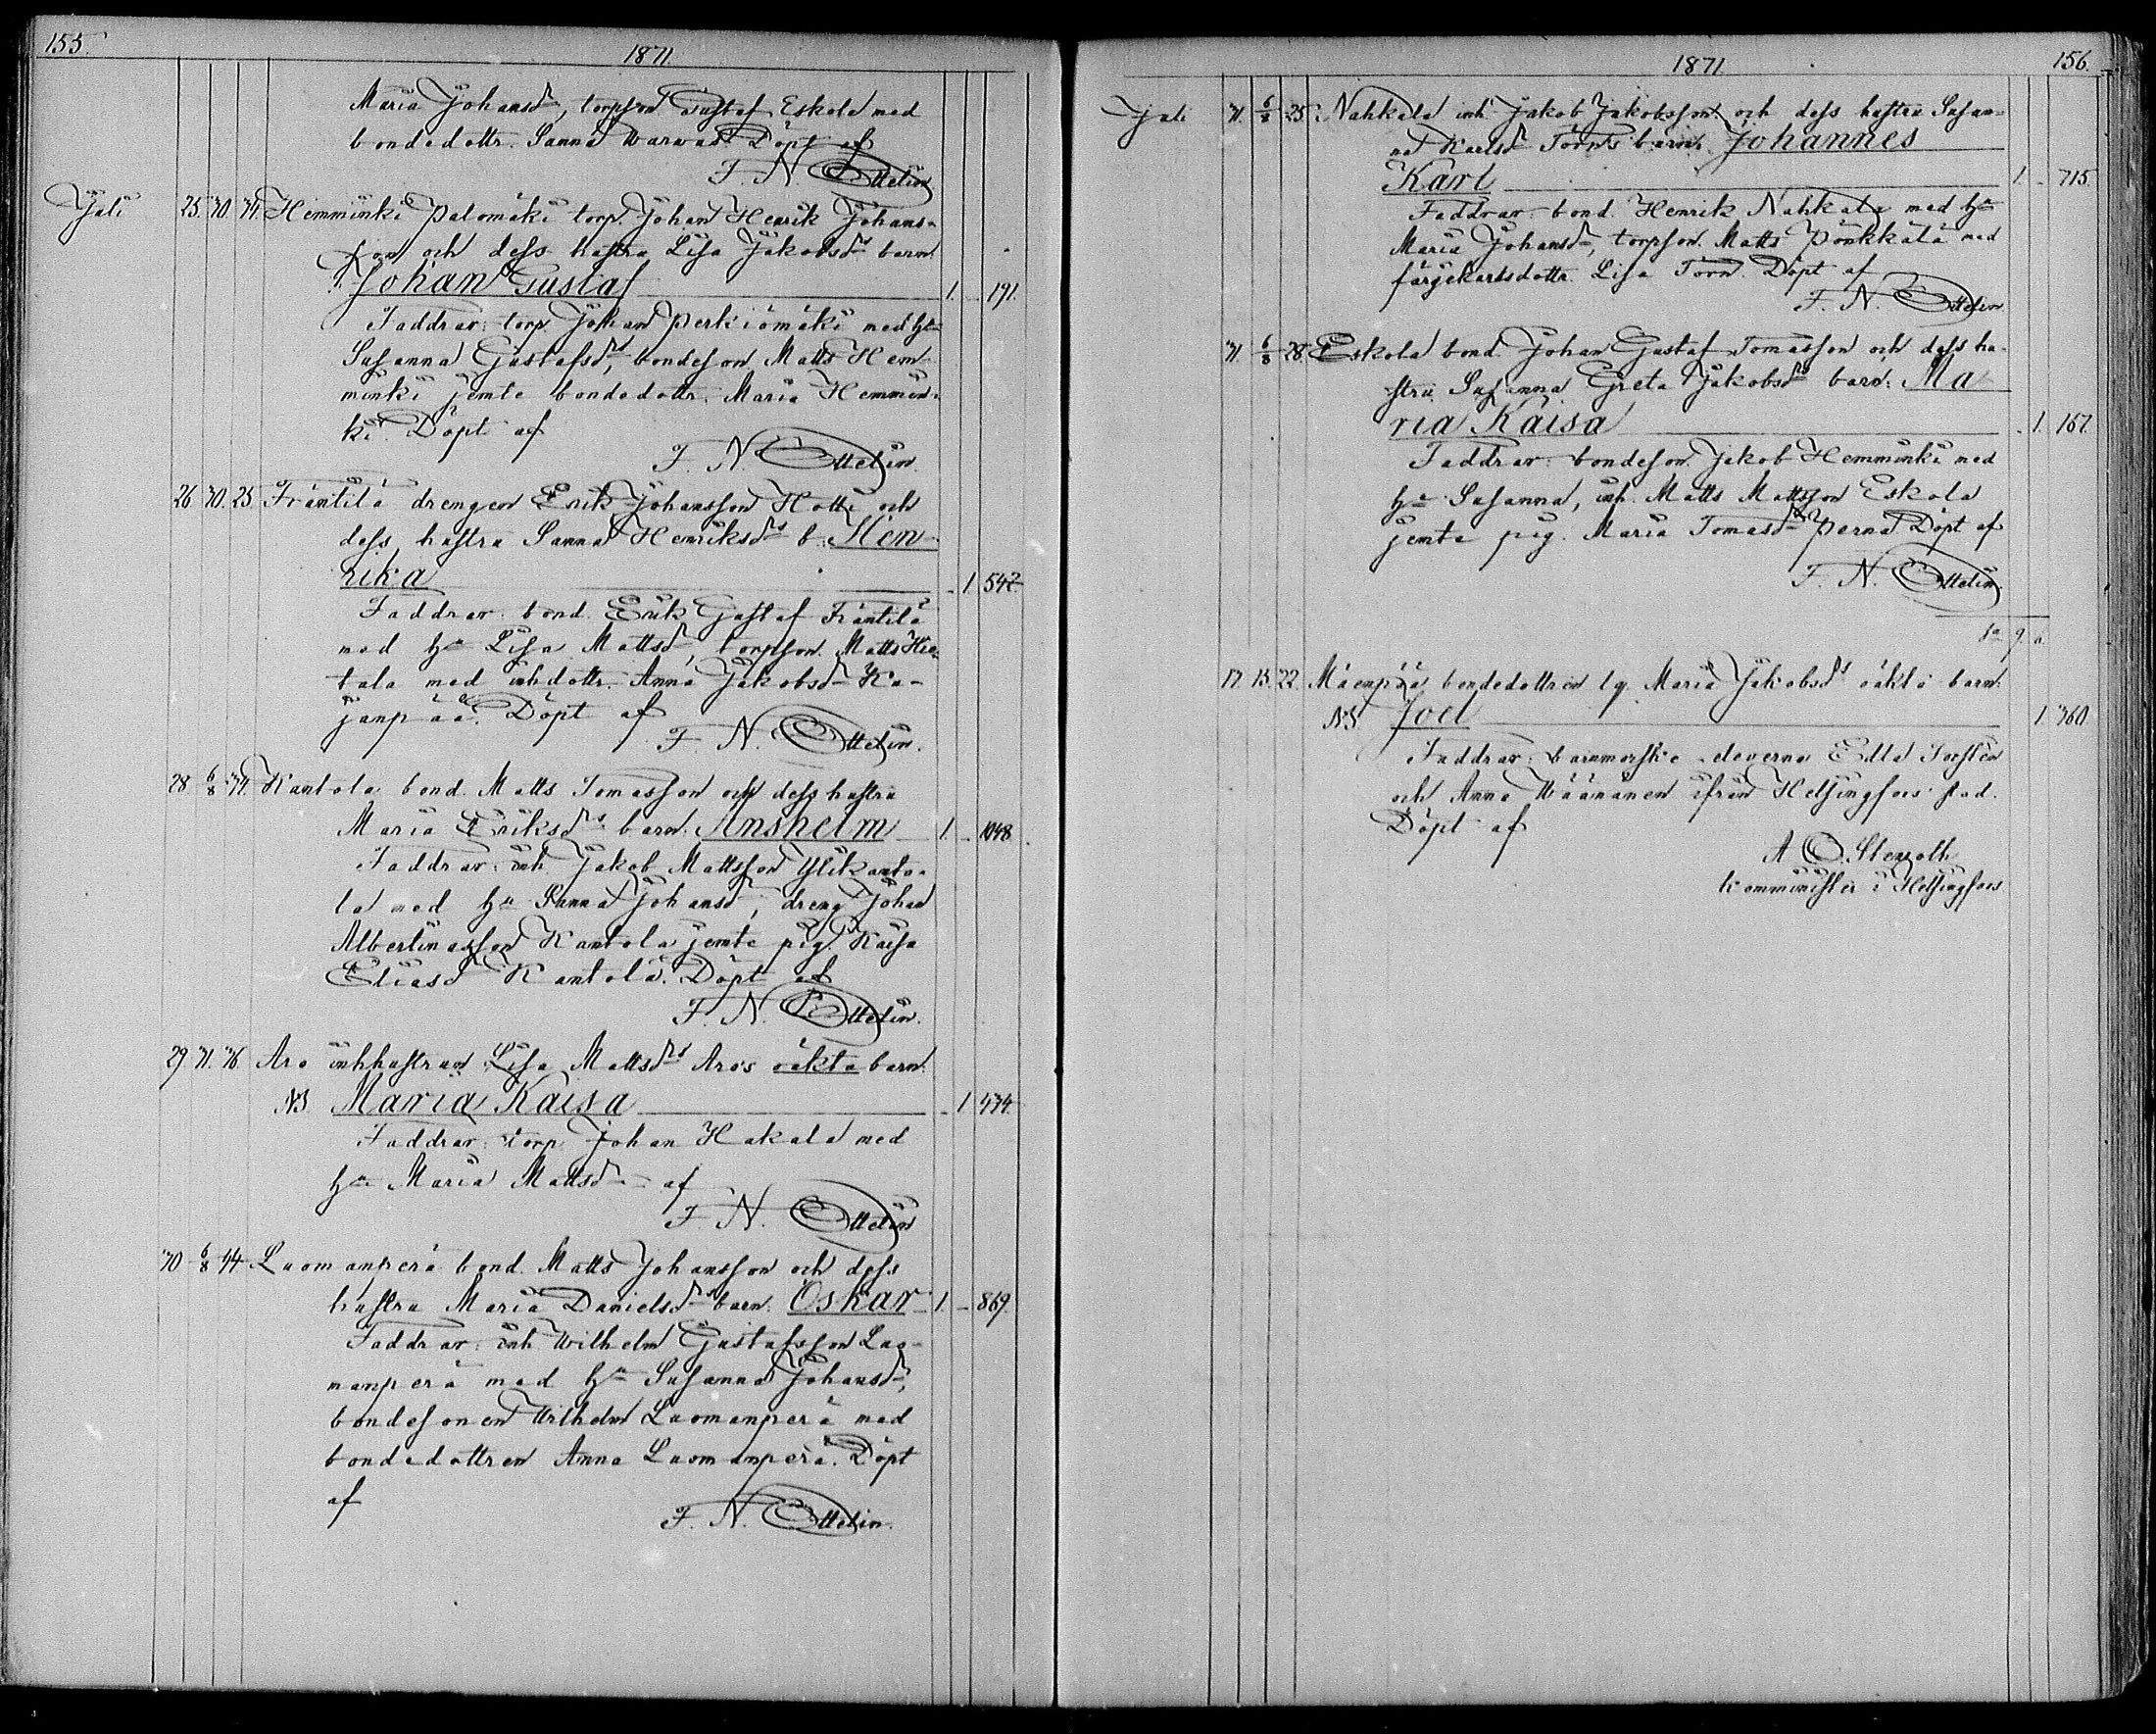 155.
1871.
Maria Johansdr, torpson Gustaf Eskola med
bondedottr. Sanna Warwas. Döpt af
F. N. Ottelin
Juli 25. 30. 34. Hemminki Palomäki torp. Johan Henrik Johans-
son och dess hustru Lisa Jakobsdrs barn:
Johan Gustaf 1. 191.
Faddrar: torp. Johan Perkiömäki med hu
Susanna Gustafsdr, bondeson Matts Hem-
minki jemte bondedottr. Maria Hemmin-
ki. Döpt af
F. N. Ottelin.
26 30. 25. Fräntilä drengen Erik Johansson Hotti och
dess hustru Sanna Henriksdrs b: Hen-
rika 1 542.
Faddrar: bond. Erik Gustaf Fräntilä
med hu Lisa Mattsdr, torpson. Matts Hie-
tala med inhdottr. Anna Jakobsdr Ka-
janpää. Döpt af
F. N. Ottelin.
28 6/8 34. Kantola bond. Matts Tomasson och dess hustru
Maria Eriksdrs barn: Anshelm 1. 1048.
Faddrar: inh. Jakob Mattsson Ylikanto-
la med hu Sanna Johansdr, dreng Johan
Albertinasson Kantola jemte pig. Kaisa
Eliasdr Kantola. Döpt af
F. N. Ottelin.
29 31. 36. Aro inhhustrun Lisa Mattsdrs Aros oäkta barn:
NB. Maria Kaisa 1 434.
Faddrar: torp. Johan Hakala med
hu Maria Mattsdr af
F. N. Ottelin
30 6/8 44 Luomanperä bond. Matts Johansson och dess
hustru Maria Danielsdrs barn: Oskar 1. 869.
Faddrar: inh Wilhelm Gustafsson Luo-
manperä med hu Susanna Johansdr,
bondesonen Wilhelm Luomanperä med
bondedottren Anna Luomanperä. Döpt
af
F. N. Ottelin.
1871.
156.
Juli 31. 6/8 25. Nahkala inh. Jakob Jakobsson och dess hustru Susan-
na Karlsdr Törns barn: Johannes
Karl 1. 715.
Faddrar: bond. Henrik Nahkala med hu
Maria Johansdr, torpson. Matts Pönkkälä med
färgekarlsdottr. Lisa Törn. Döpt af
F. N. Ottelin.
31. 6/8 28. Eskola bond. Johan Gustaf Tomasson och dess hu-
stru Susanna Greta Jakobsdrs barn: Ma
ria Kaisa 1. 167.
Faddrar: bondeson. Jakob Hemminki med
hu Susanna, inh. Matts Mattsson Eskola
jemte pig. Maria Tomasdr Perna Döpt af
F. N. Ottelin.
17. 13. 22. Mäenpää bondedottren lg. Maria Jakobsdrs oäkta barn:
NB. Joel 1. 360.
Faddrar: barnmorske-eleverna Edla
och Anna Wäänänen ifrån Helsingfors stad.
Döpt af
A O. Stenroth
komminister i Helsingfors